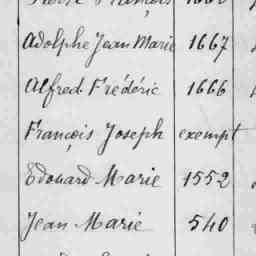 Adolphe Jean Marie 1667
Alfred Frédéric 1666
François Joseph exempt
Edouard Marie 1552
Jean Marie 540